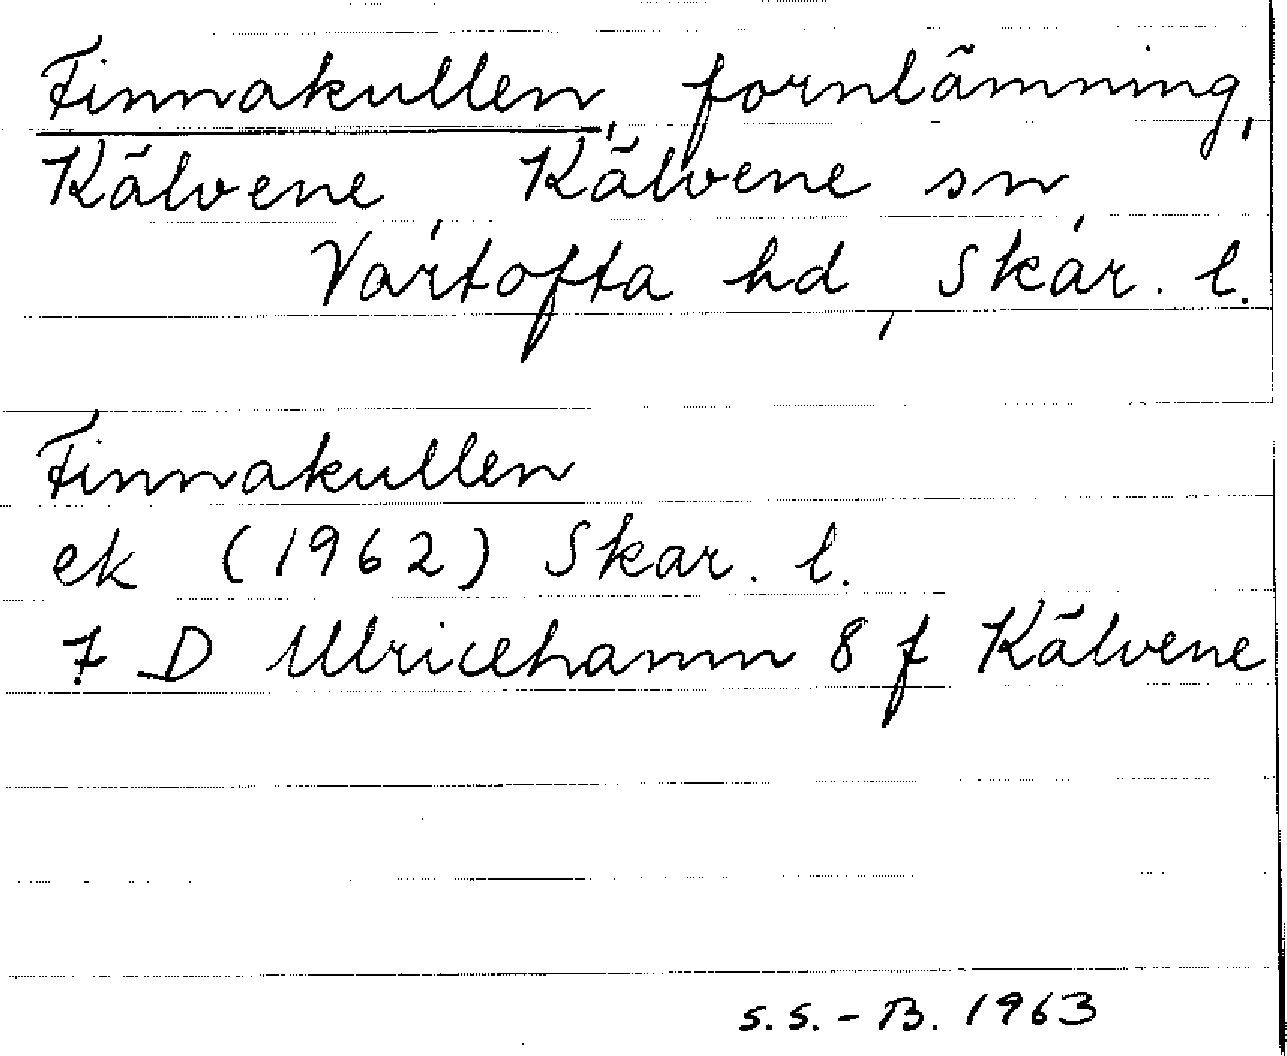 Finnakullen, fornlämning,
Kälvene, Kälvene sn,
Vartofta hd, Skar. l.
Finnakullen
ek (1962) Skar. l.
7 D Ulricehamn 8 f Kälvene
S.S.-B. 1963